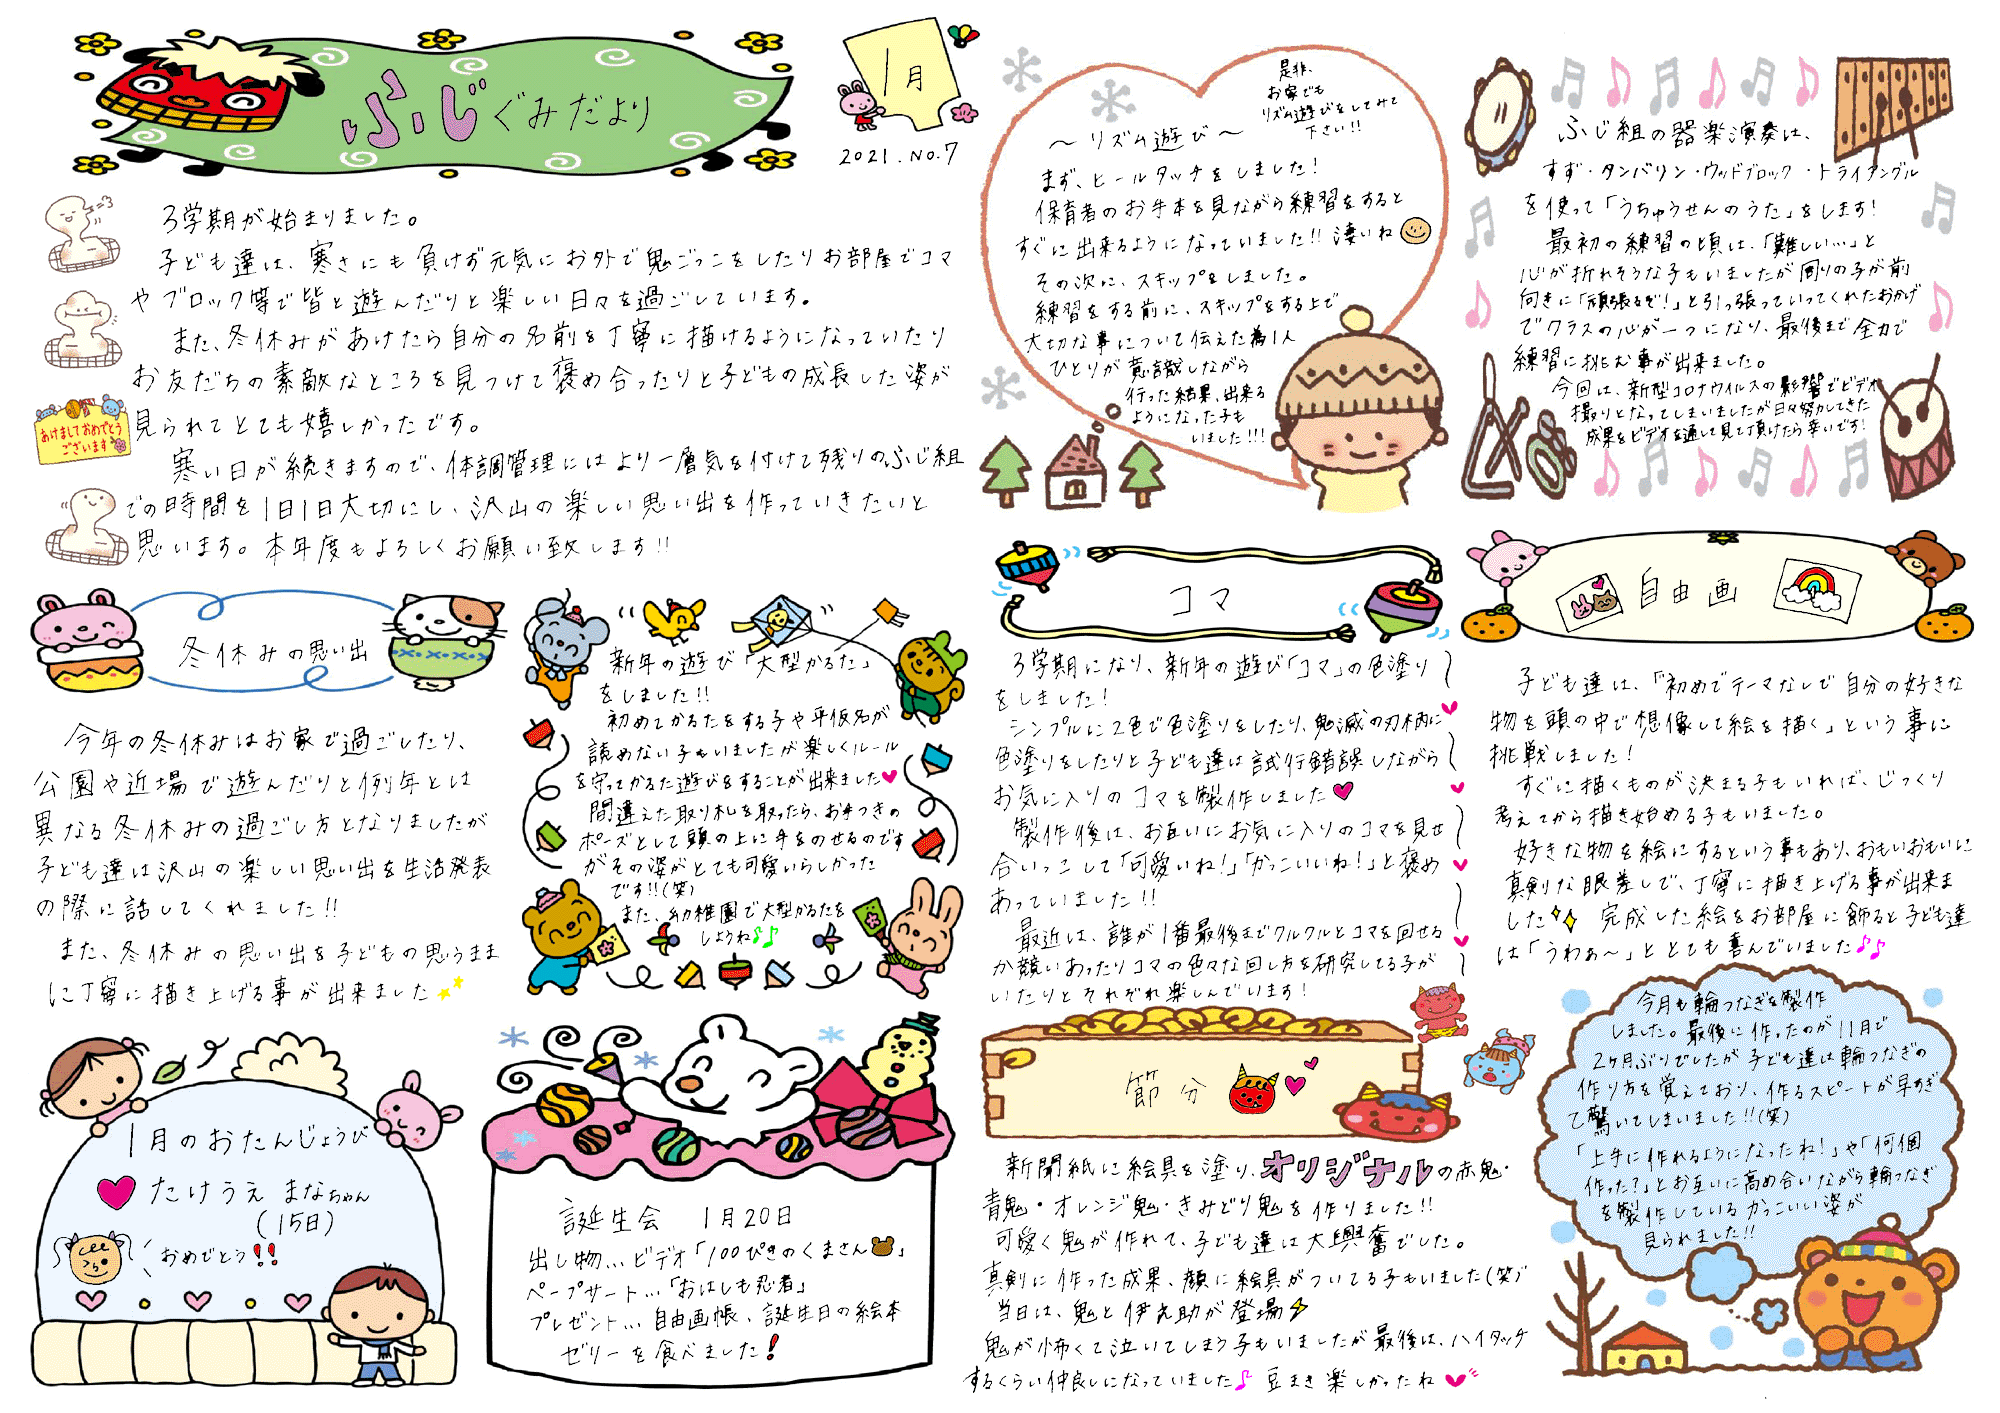 ふじぐみだより
1月
2021.NO.7
3学期が始まりました。
子ども達は、寒さにも負けず元気にお外で鬼ごっこをしたりお部屋でコマ
やブロック等で皆と遊んだりと楽しい日々を過ごしています。
また、冬休みがあけたら自分の名前を丁寧に描けるようになっていたり
お友だちの素敵なところを見つけて褒め合ったりと子どもの成長した姿が
見られてとても嬉しかったです。
寒い日が続きますので、体調管理にはより一層気を付けて残りのふじ組
での時間を1日1日大切にし、沢山の楽しい思い出を作っていきたいと
思います。本年度もよろしくお願い致します!!
あけましておめでとう
ございます
冬休みの思い出
今年の冬休みはお家で過ごしたり、
公園や近場で遊んだりと例年とは
異なる冬休みの過ごし方となりましたが
子ども達は沢山の楽しい思い出を生活発表
の際に話してくれました!!
また、冬休みの思い出を子どもの思うまま
に丁寧に描き上げる事が出来ました
新年の遊び「大型かるた」
をしました!!
初めてかるたをする子や平仮名が
読めない子もいましたが楽しくルール
を守ってかるた遊びをすることが出来ました
間違えた取り札を取ったら、お手つきの
ポーズとして頭の上に手をのせるのです
がその姿がとても可愛いらしかった
です!!(笑)
また、幼稚園で大型かるたを
しようね♪♪
1月のおたんじょうび
たけうえ まなちゃん
(15日)
おめでとう!!
誕生会 1月20日
出し物…ビデオ「100ぴきのくまさん」
ペープサート…「おはしも忍者」
プレゼント…自由画帳、誕生日の絵本
ゼリーを食べました!
～リズム遊び～
是非、
お家でも
リズム遊びをしてみて
下さい!!
まず、ヒールタッチをしました!
保育者のお手本を見ながら練習をすると
すぐに出来るようになっていました!! 凄いね
その次に、スキップをしました。
練習をする前に、スキップをする上で
大切な事について伝えた為1人
ひとりが意識しながら
行った結果、出来る
ようになった子も
いました!!!
ふじ組の器楽演奏は、
すず・タンバリン・ウッドブロック・トライアングル
を使って「うちゅうせんのうた」をします!
最初の練習の頃は、「難しい…」と
心が折れそうな子もいましたが周りの子が前
向きに「頑張るぞ!」と引っ張っていってくれたおかげ
でクラスの心が一つになり、最後まで全力で
練習に挑む事が出来ました。
今回は、新型コロナウイルスの影響でビデオ
撮りとなってしまいましたが日々努力してきた
成果をビデオを通して見て頂けたら幸いです!
コマ
3学期になり、新年の遊び「コマ」の色塗り
をしました!
シンプルに2色で色塗りをしたり、鬼滅の刃柄に
色塗りをしたりと子ども達は試行錯誤しながら
お気に入りのコマを製作しました
製作後は、お互いにお気に入りのコマを見せ
合いっこして「可愛いね!」「かっこいいね!」と褒め
あっていました!!
最近は、誰が1番最後までクルクルとコマを回せる
か競いあったりコマの色々な回し方を研究してる子が
いたりとそれぞれ楽しんでいます!
自由画
子ども達は、「初めてテーマなしで自分の好きな
物を頭の中で想像して絵を描く」という事に
挑戦しました!
すぐに描くものが決まる子もいれば、じっくり
考えてから描き始める子もいました。
好きな物を絵にするという事もあり、おもいおもいに
真剣な眼差しで、丁寧に描き上げる事が出来ま
した 完成した絵をお部屋に飾ると子ども達
は「うわぁ～」ととても喜んでいました♪♪
節分
新聞紙に絵具を塗り、オリジナルの赤鬼・
青鬼・オレンジ鬼・きみどり鬼を作りました!!
可愛く鬼が作れて、子ども達は大興奮でした。
真剣に作った成果、顔に絵具がついてる子もいました(笑)
当日は、鬼と伊之助が登場
鬼が怖くて泣いてしまう子もいましたが最後は、ハイタッチ
するくらい仲良しになっていました♪ 豆まき楽しかったね
今月も輪つなぎを製作
しました。最後に作ったのが11月で
2ヶ月ぶりでしたが子ども達は輪つなぎの
作り方を覚えており、作るスピードが早すぎ
て驚いてしまいました!!(笑)
「上手に作れるようになったね!」や「何個
作った?」とお互いに高め合いながら輪つなぎ
を製作しているかっこいい姿が
見られました!!